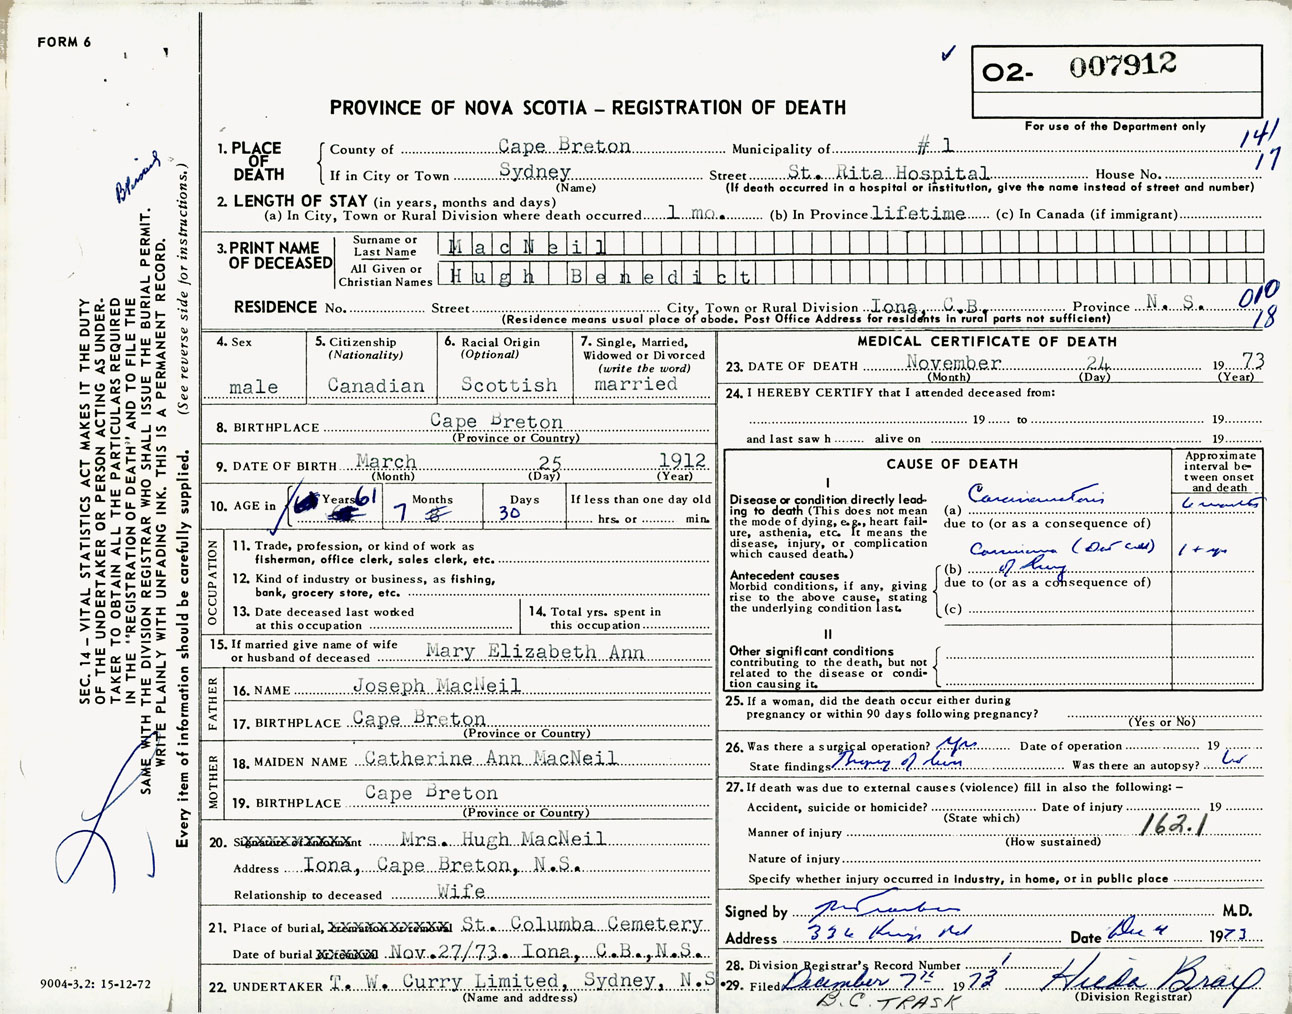 FORM 6
O2- 007912
PROVINCE OF NOVA SCOTIA – REGISTRATION OF DEATH
For use of the Department only
141
17
1. PLACE OF DEATH
County of Cape Breton Municipality of # 1
If in City or Town Sydney Street St. Rita Hospital House No.
(Name) (If death occurred in a hospital or institution, give the name instead of street and number)
2. LENGTH OF STAY (in years, months and days)
(a) In City, Town or Rural Division where death occurred 1 mo. (b) In Province lifetime (c) In Canada (if immigrant)
3. PRINT NAME OF DECEASED
Surname or Last Name MacNeil
All Given or Christian Names Hugh Benedict
010
18
RESIDENCE No. Street City, Town or Rural Division Iona, C.B. Province N. S.
(Residence means usual place of abode. Post Office Address for residents in rural parts not sufficient)
4. Sex
male
5. Citizenship
(Nationality)
Canadian
6. Racial Origin
(Optional)
Scottish
7. Single, Married,
Widowed or Divorced
(write the word)
married
8. BIRTHPLACE Cape Breton
(Province or Country)
9. DATE OF BIRTH March 25 1912
(Month) (Day) (Year)
10. AGE in Years 61 Months 7 Days 30 If less than one day old
hrs. or min.
OCCUPATION
11. Trade, profession, or kind of work as
fisherman, office clerk, sales clerk, etc.
12. Kind of industry or business, as fishing,
bank, grocery store, etc.
13. Date deceased last worked
at this occupation
14. Total yrs. spent in
this occupation
15. If married give name of wife
or husband of deceased Mary Elizabeth Ann
FATHER
16. NAME Joseph MacNeil
17. BIRTHPLACE Cape Breton
(Province or Country)
MOTHER
18. MAIDEN NAME Catherine Ann MacNeil
19. BIRTHPLACE Cape Breton
(Province or Country)
20. Signature of informant Mrs. Hugh MacNeil
Address Iona, Cape Breton, N.S.
Relationship to deceased Wife
21. Place of burial, cremation or removal St. Columba Cemetery
Date of burial or removal Nov.27/73. Iona, C.B.,N.S.
22. UNDERTAKER T. W. Curry Limited, Sydney, N.S.
(Name and address)
MEDICAL CERTIFICATE OF DEATH
23. DATE OF DEATH November 24 1973
(Month) (Day) (Year)
24. I HEREBY CERTIFY that I attended deceased from:
19 to 19
and last saw h alive on 19
CAUSE OF DEATH
Approximate
interval be-
tween onset
and death
I
Disease or condition directly lead-
ing to death (This does not mean
the mode of dying, e.g., heart fail-
ure, asthenia, etc. It means the
disease, injury, or complication
which caused death.)
(a) Carcinomatosis 6 months
due to (or as a consequence of)
Antecedent causes
Morbid conditions, if any, giving
rise to the above cause, stating
the underlying condition last.
Carcinoma (Oat cell) 1 + yr
(b) of lung
due to (or as a consequence of)
(c)
II
Other significant conditions
contributing to the death, but not
related to the disease or condi-
tion causing it.
25. If a woman, did the death occur either during
pregnancy or within 90 days following pregnancy?
(Yes or No)
26. Was there a surgical operation? yes Date of operation 19
State findings Biopsy of Was there an autopsy? no
27. If death was due to external causes (violence) fill in also the following: –
Accident, suicide or homicide? Date of injury 19
(State which)
162.1
Manner of injury
(How sustained)
Nature of injury
Specify whether injury occurred in industry, in home, or in public place
Signed by M.D.
Address 336 Kings Rd Date Dec 4 1973
28. Division Registrar's Record Number
29. Filed December 7th 1973 Hilda Bray
(Division Registrar)
B.C. TRASK
SEC. 14 – VITAL STATISTICS ACT MAKES IT THE DUTY
OF THE UNDERTAKER OR PERSON ACTING AS UNDER-
TAKER TO OBTAIN ALL THE PARTICULARS REQUIRED
IN THE "REGISTRATION OF DEATH" AND TO FILE THE
SAME WITH THE DIVISION REGISTRAR WHO SHALL ISSUE THE BURIAL PERMIT.
WRITE PLAINLY WITH UNFADING INK. THIS IS A PERMANENT RECORD.
Every item of information should be carefully supplied. (See reverse side for instructions.)
9004-3.2: 15-12-72